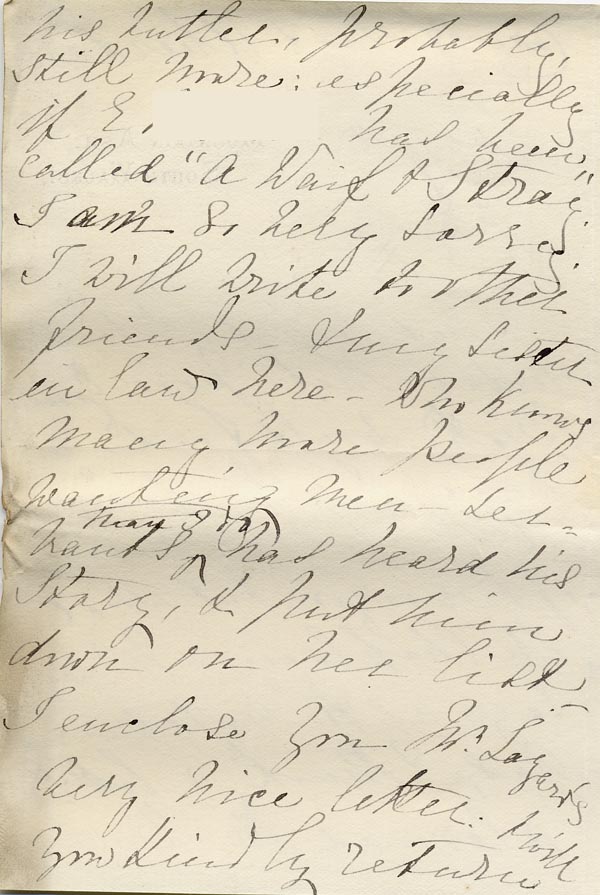 his butler, probably,
still more: especially
if E. has been
called "A Waif & Stray".
I am so very sorry.
I will write to other
friends - & my sister
in law here - who knows
many more people
wanting men-ser-
vants, has heard his
story, & put him
down on her list -
I enclose you Mr.
very nice letter: will
you kindly return